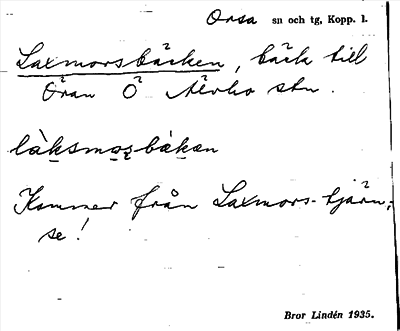 Orsa sn och tg, Kopp. l.
Laxmorsbäcken, bäck till
Öran Ö Älvho stn.
làksmo̠rbäkan
Kommer från Laxmors-tjärn;
se!
Bror Lindén 1935.